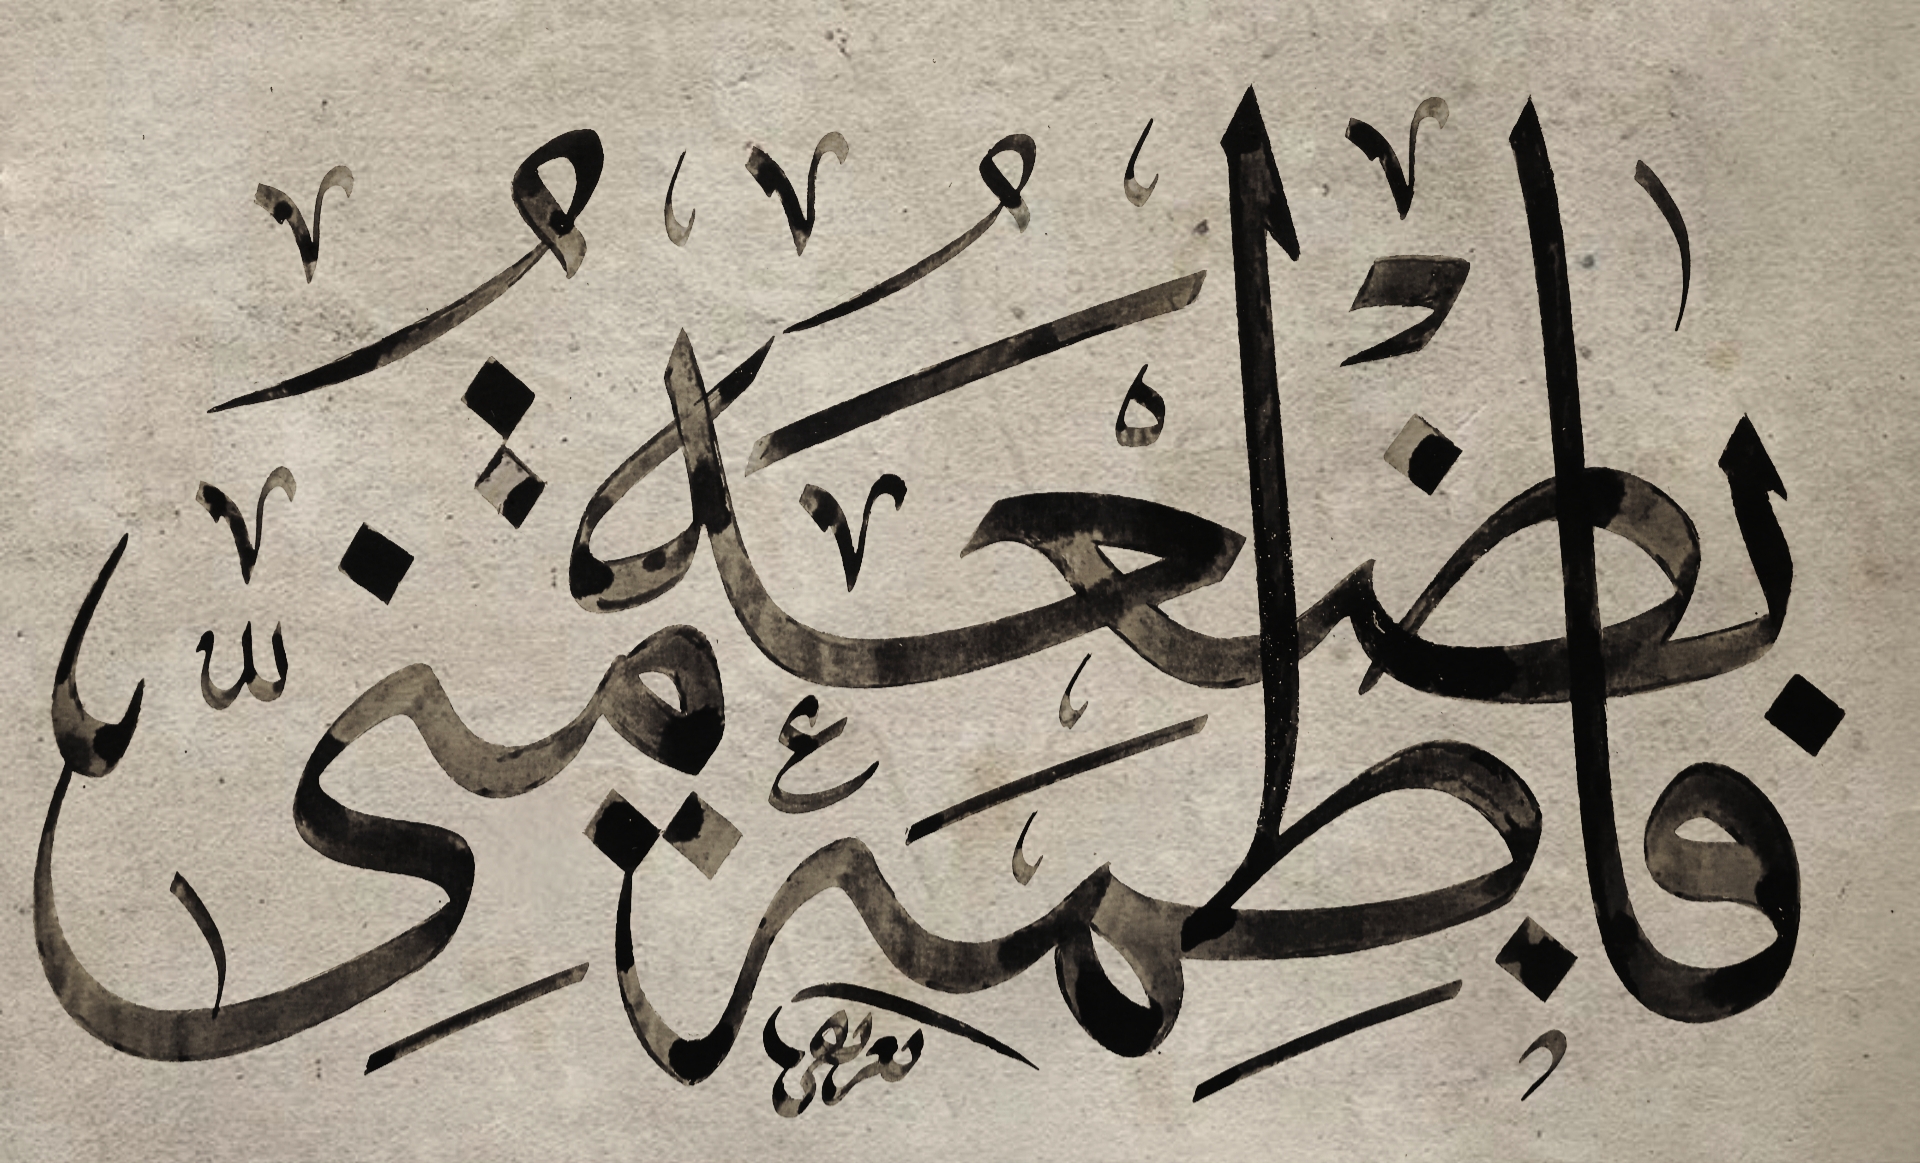 فاطِمَةُ
بَضْعَةٌ مِنِّي